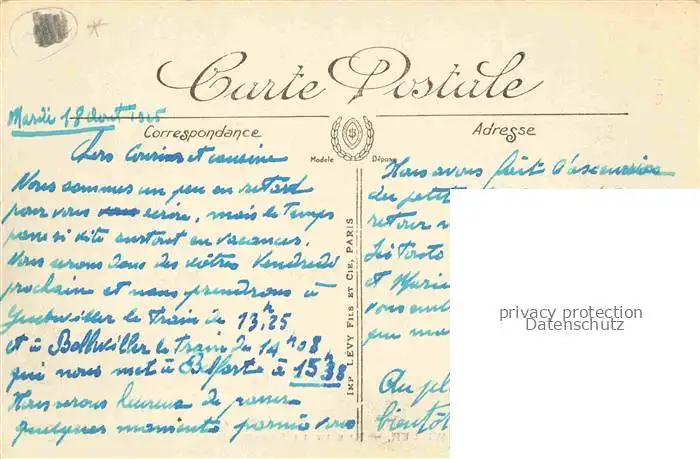 Carte Postale
Mardi 18 Aout
Correspondance
Adresse
Modèle Déposé
Chers Cousins et cousine
Nous sommes un peu en retard
pour vous écrire, mais le temps
passe si vite surtout en vacances.
Nous serons donc des vôtres Vendredi
prochain et nous prendrons à
Guebwiller le train de 13h,25
et à Bollwiller le train de 14h08
qui nous met à Belfort à 15h38
Nous serons heureux de passer
quelques moments parmi vous
IMP. LÉVY FILS ET CIE, PARIS
Nous avons fait l'ascension
du petit
retour
et Marie
vous
que
Au pl
bientôt
privacy protection
Datenschutz